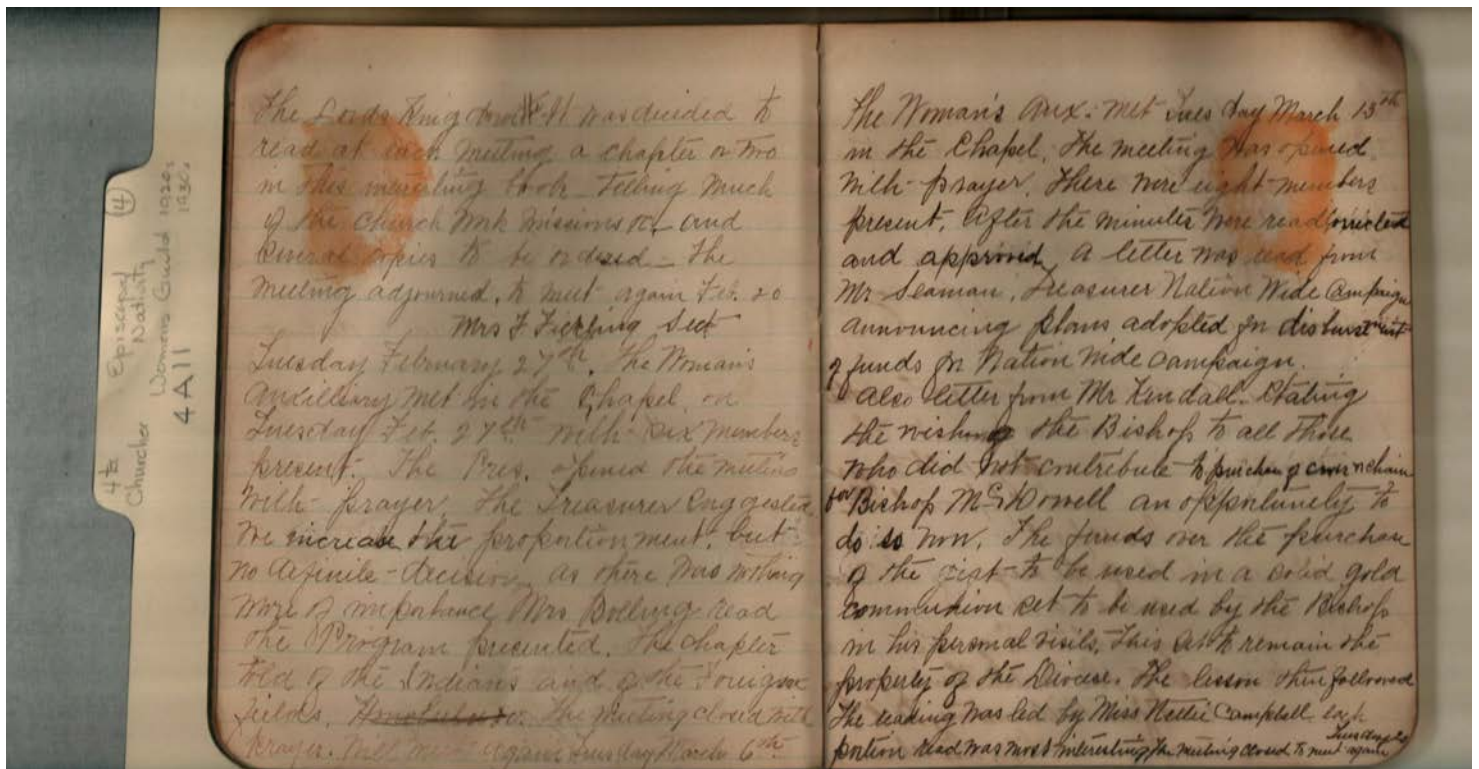 4th Episcopal ④
Church Nativity
Womens Guild 1920s
1930s
4 A 11
The Lords Kingdom It was decided to
read at each meeting a chapter or two
in this interesting book telling much
of the Church Work missions &c and
several copies to be ordered — The
meeting adjourned, to meet again Feb. 20
Mrs F Fickling Sect
Tuesday February 27th, The Womans
Auxilliary met in the Chapel, on
Tuesday Feb. 27th with six members
present. The Pres. opened the meeting
with prayer, The Treasurer suggested
we increase the proportionment, but
no definite decision, as there was nothing
more of importance Mrs Bolling read
the Program presented. The chapter
told of the Indians and of the Foreign
fields, The meeting closed with
prayer. Will meet again Tuesday March 6th
The Woman's Aux: met Tuesday March 13th
in the Chapel, The meeting was opened
with prayer. There were eight members
present, After the minutes were read corrected
and approved, A letter was read from
Mr Seaman, Treasurer Nation Wide Campaign
announcing plans adopted for disbursement
of funds for Nation wide campaign.
Also letter from Mr Kendall. Stating
the wish of the Bishop to all those
who did not contribute to purchase of chain
for Bishop McDowell an opportunety to
do so now. The funds over the purchase
of the gift to be used in a solid gold
communion set to be used by the Bishop
in his personal visits, This set to remain the
property of the Diocese. The lesson then followed
The reading was led by Miss Nettie Campbell. each
portion read was most interesting The meeting closed to meet again
Tuesday 20